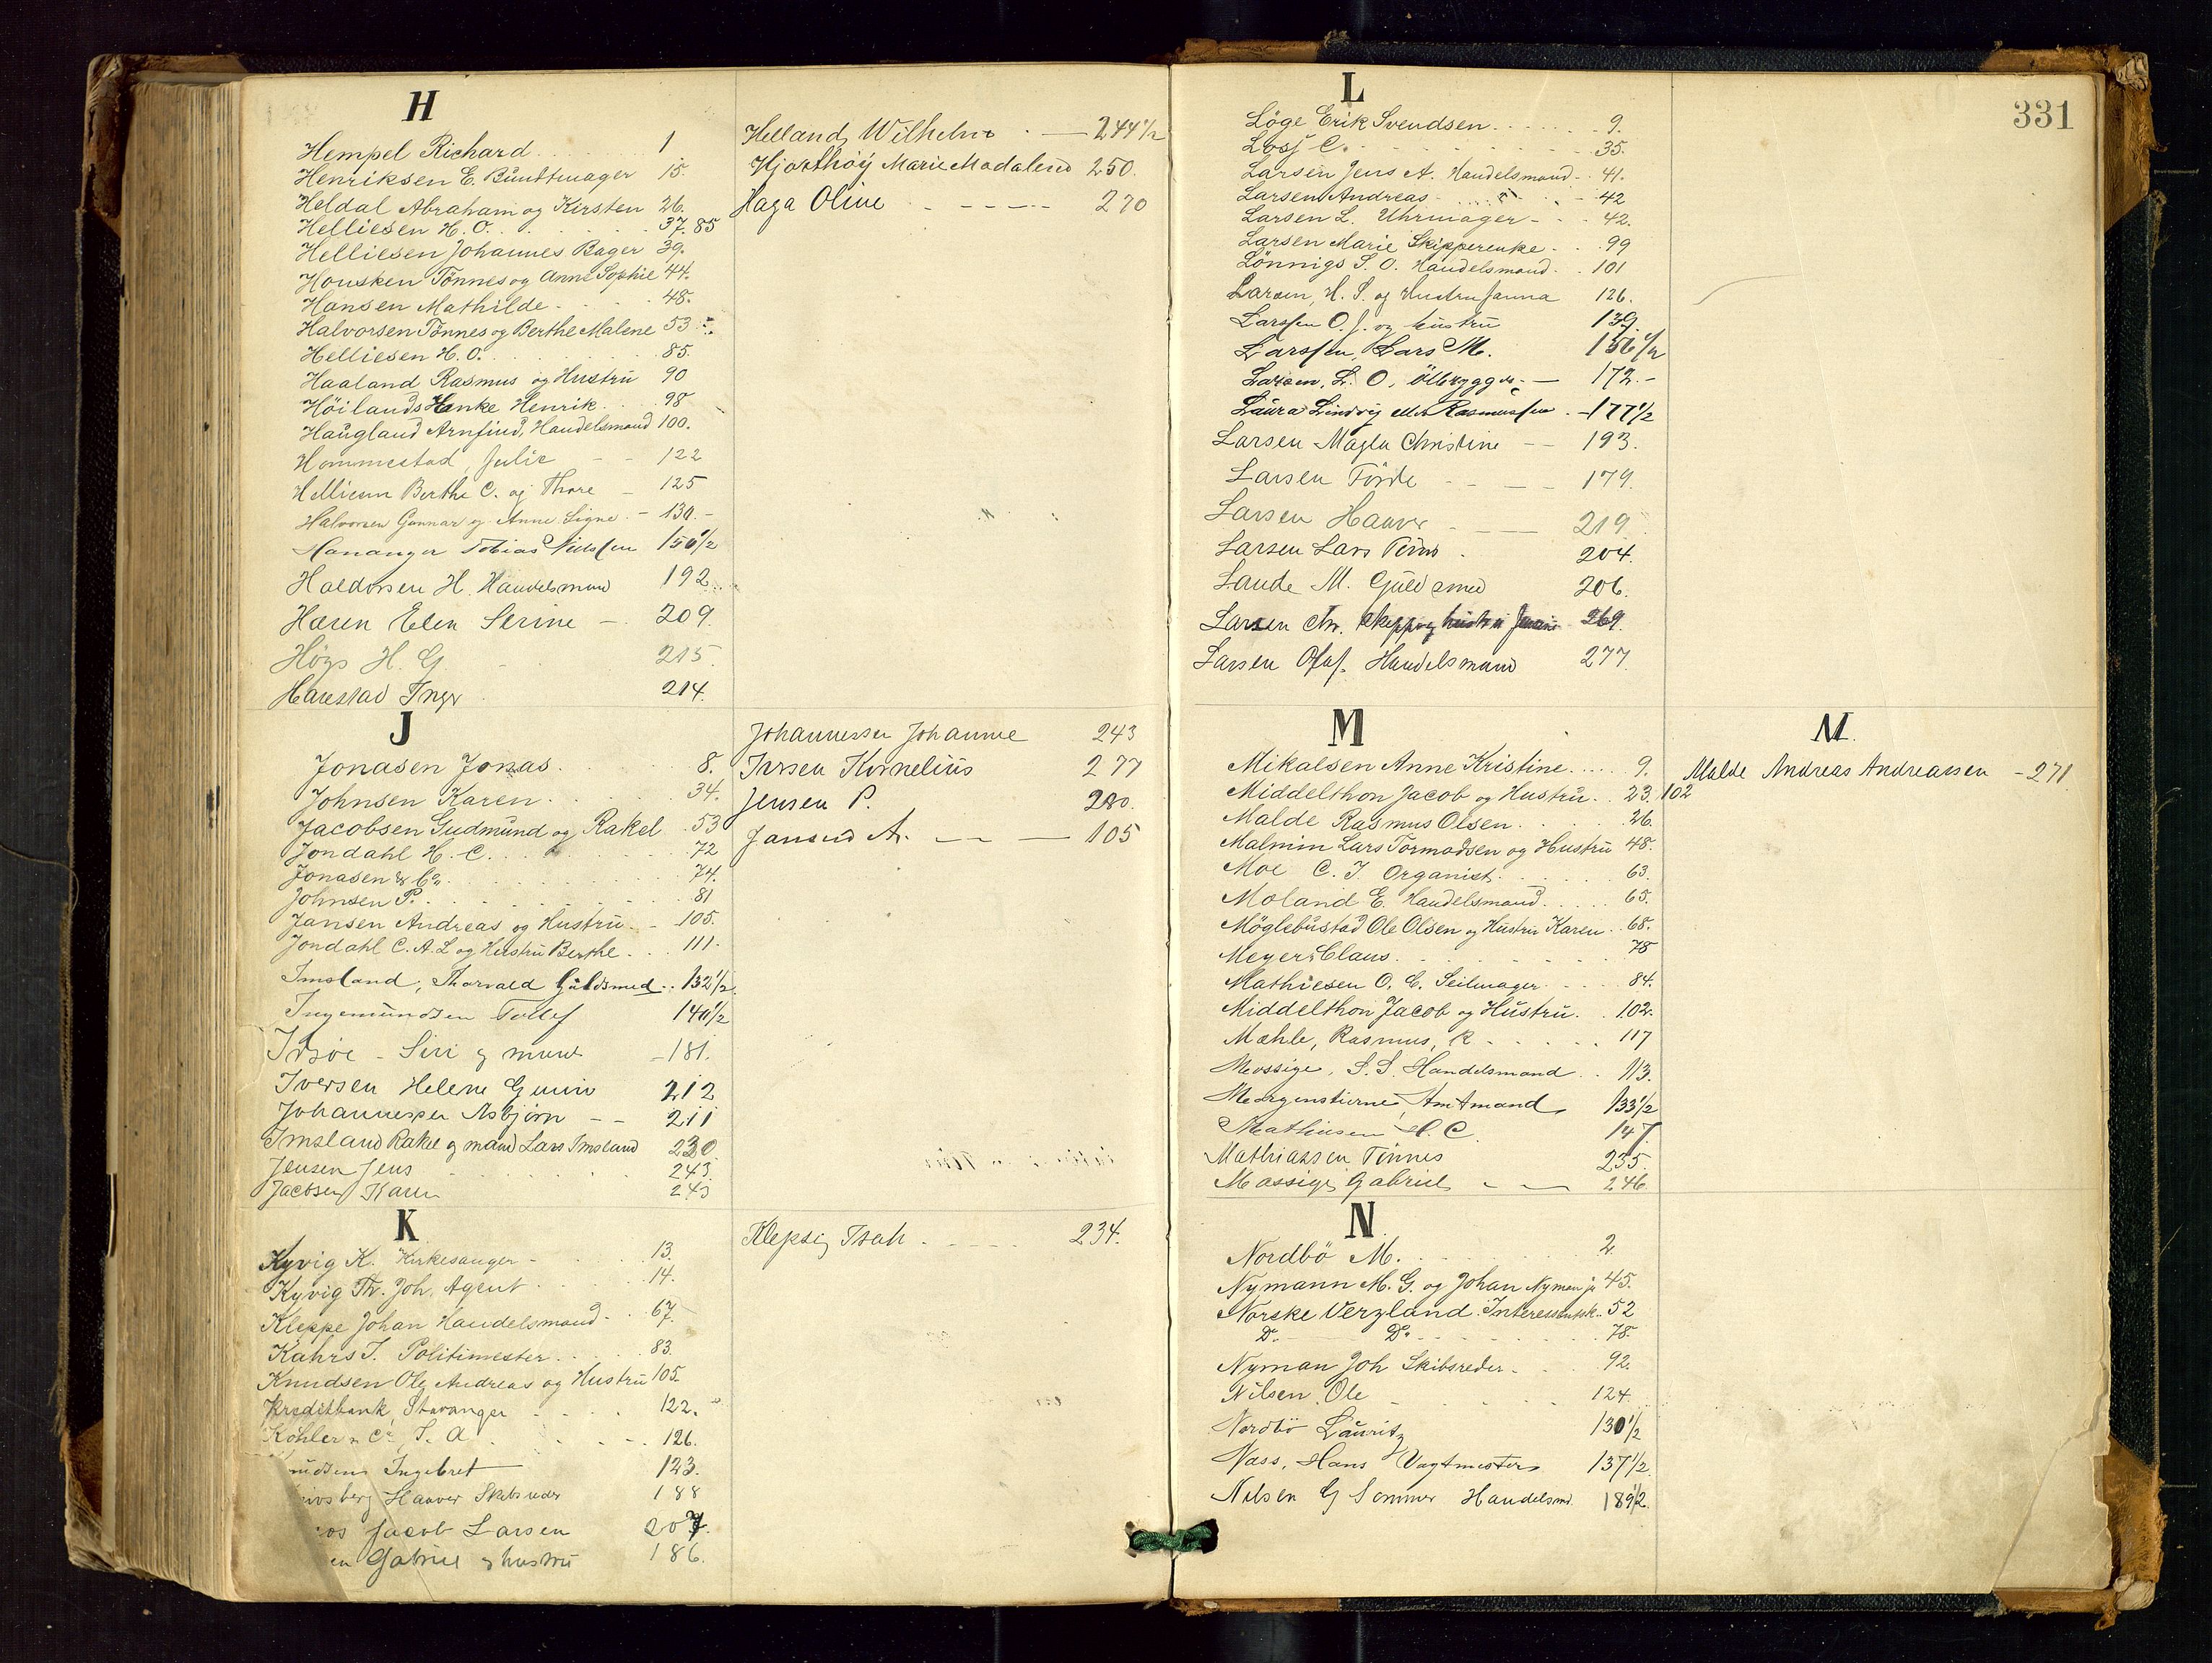 H
Hempel Richard 1
Henriksen E. Buntmager 15.
Heldal Abraham og Kirsten 26.
Helliesen H. O. 37. 85
Helliesen Johannes Bager 39.
Housken Tönnes og Anne Sophie 44.
Hansen Mathilde 48.
Halvorsen Tönnes og Berthe Malene 53
Helliesen H. O. 85.
Haaland Rasmus og Hustru 90
Höilands Enke Henrik 98
Haugland Arnfind, Handelsmand 100.
Hommestad, Julie 122
Helliesen Berthe C. og Thore 125
Halvorsen Gunnar og Anne Signe 130.
Hananger Tobias Nielssen 156 1/2
Haldorsen H. Handelsmand 192
Haren Elen Serine 209.
Högs H. G. 215.
Harestad Inger 214.
Helland, Wilhelm 244 1/2
Hjorthöy Marie Madalene 250.
Haga Oline 270
J
Jonasen Jonas 8.
Johnsen Karen 34.
Jacobsen Gudmund og Rakel 53
Jondahl H. C. 72
Jonasen & Co. 74.
Johnsen P. 81
Jansen Andreas og Hustru 105.
Jondahl C. A. L og Hustru Berthe 111.
Imsland, Thorvald Guldsmed 132 1/2
Ingemundsen Tollef 140 1/2
Siri og mand 181.
Iversen Helene 212
Johannessen Asbjörn 211
Imsland Rakel og mand Lars Imsland 230.
Jensen Jens 243.
Jacobsen Karen 243
Johannessen Johanne 243
Iversen Kornelius 277
Jensen P. 280.
Jansen A. 105
K
Kyvig K. Kirkesanger 13.
Kyvig Th. Joh. Agent 14.
Kleppe Johan Handelsmand 67.
Kahrs J. Politimester 83.
Knudsen Ole Andreas og Hustru 105.
Kreditbank, Stavanger 122.
Köhler & Co. T. A. 126.
Ingebret 123.
Haaver Skibsreder 188
Jacob Larsen 207.
Gabriel og hustru 186.
Klepsig Isak 234.
331
L
Löge Erik Svendsen 9.
C. 35.
Larsen Jens A. Handelsmand 41.
Larsen Andreas 42
Larsen L. Uhrmager 42.
Larsen Marie Skipperenke 99
Lönnigs S. O. Handelsmand 101
Larsen, H. S. og Hustru Janna 126.
Larssen O. J. og hustru 139.
Larssen, Lars M. 156 1/2
Larsen, L. O. Ölbrygger 172.
Laura Lindvig Rasmussen 177 1/2
Larsen Magla Christine 193.
Larsen Törde 179.
Larsen Haaver 219
Larsen Lars 204.
Lande M. Guldsmed 206.
Larsen Chr. 269.
Larsen Olaf Handelsmand 277.
M
Mikalsen Anne Kristine 9.
Middelthon Jacob og Hustru 23. 102
Malde Rasmus Olsen 26.
Malmin Lars Tormodsen og Hustru 48.
Moe C. J. Organist 63.
Moland E. Handelsmand 65.
Möglebustad Ole Olsen og Hustru Karen 68.
Meyer Claus 78
Mathiesen O. C. Seilmager 84.
Middelthon Jacob og Hustru 102.
Mæhle, Rasmus, R 117
Mossige, S. S. Handelsmand 113.
Morgenstierne, Amtmand 133 1/2
Mathiesen H. C. 147
Mathiassen Tönnes 235.
Mossige Gabriel 246
M.
Malde Andreas Andreassen 271
N
Nordbö M. 2.
Nymann M. G. og Johan Nyman jr 45.
Norske Veegland Interessentsk. 52
Do. Do. 78.
Nyman Joh Skibsreder 92.
Nilsen Ole 124
Nordbö Lauritz 130 1/2
Næss, Hans Vagtmester 137 1/2
Nilsen G Sommer Handelsmd. 189 1/2.